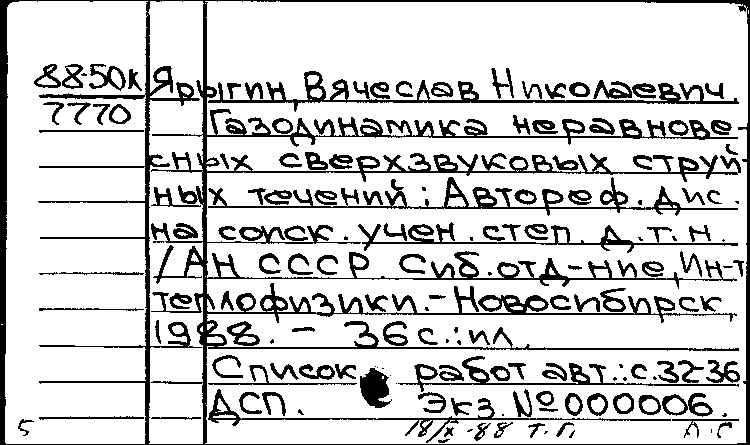 88-50к Ярыгин, Вячеслав Николаевич.
7770
Газодинамика неравнове-
сных сверхзвуковых струй-
ных течений : Автореф. дис.
на соиск. учен. степ. д.т.н.
/АН СССР. Сиб. отд-ние, Ин-т
теплофизики. - Новосибирск,
1988. - 36 с.: ил.
Список работ авт.: с. 32-36.
ДСП. Экз. № 000006.
5 18/X-88 т.г. Л.С